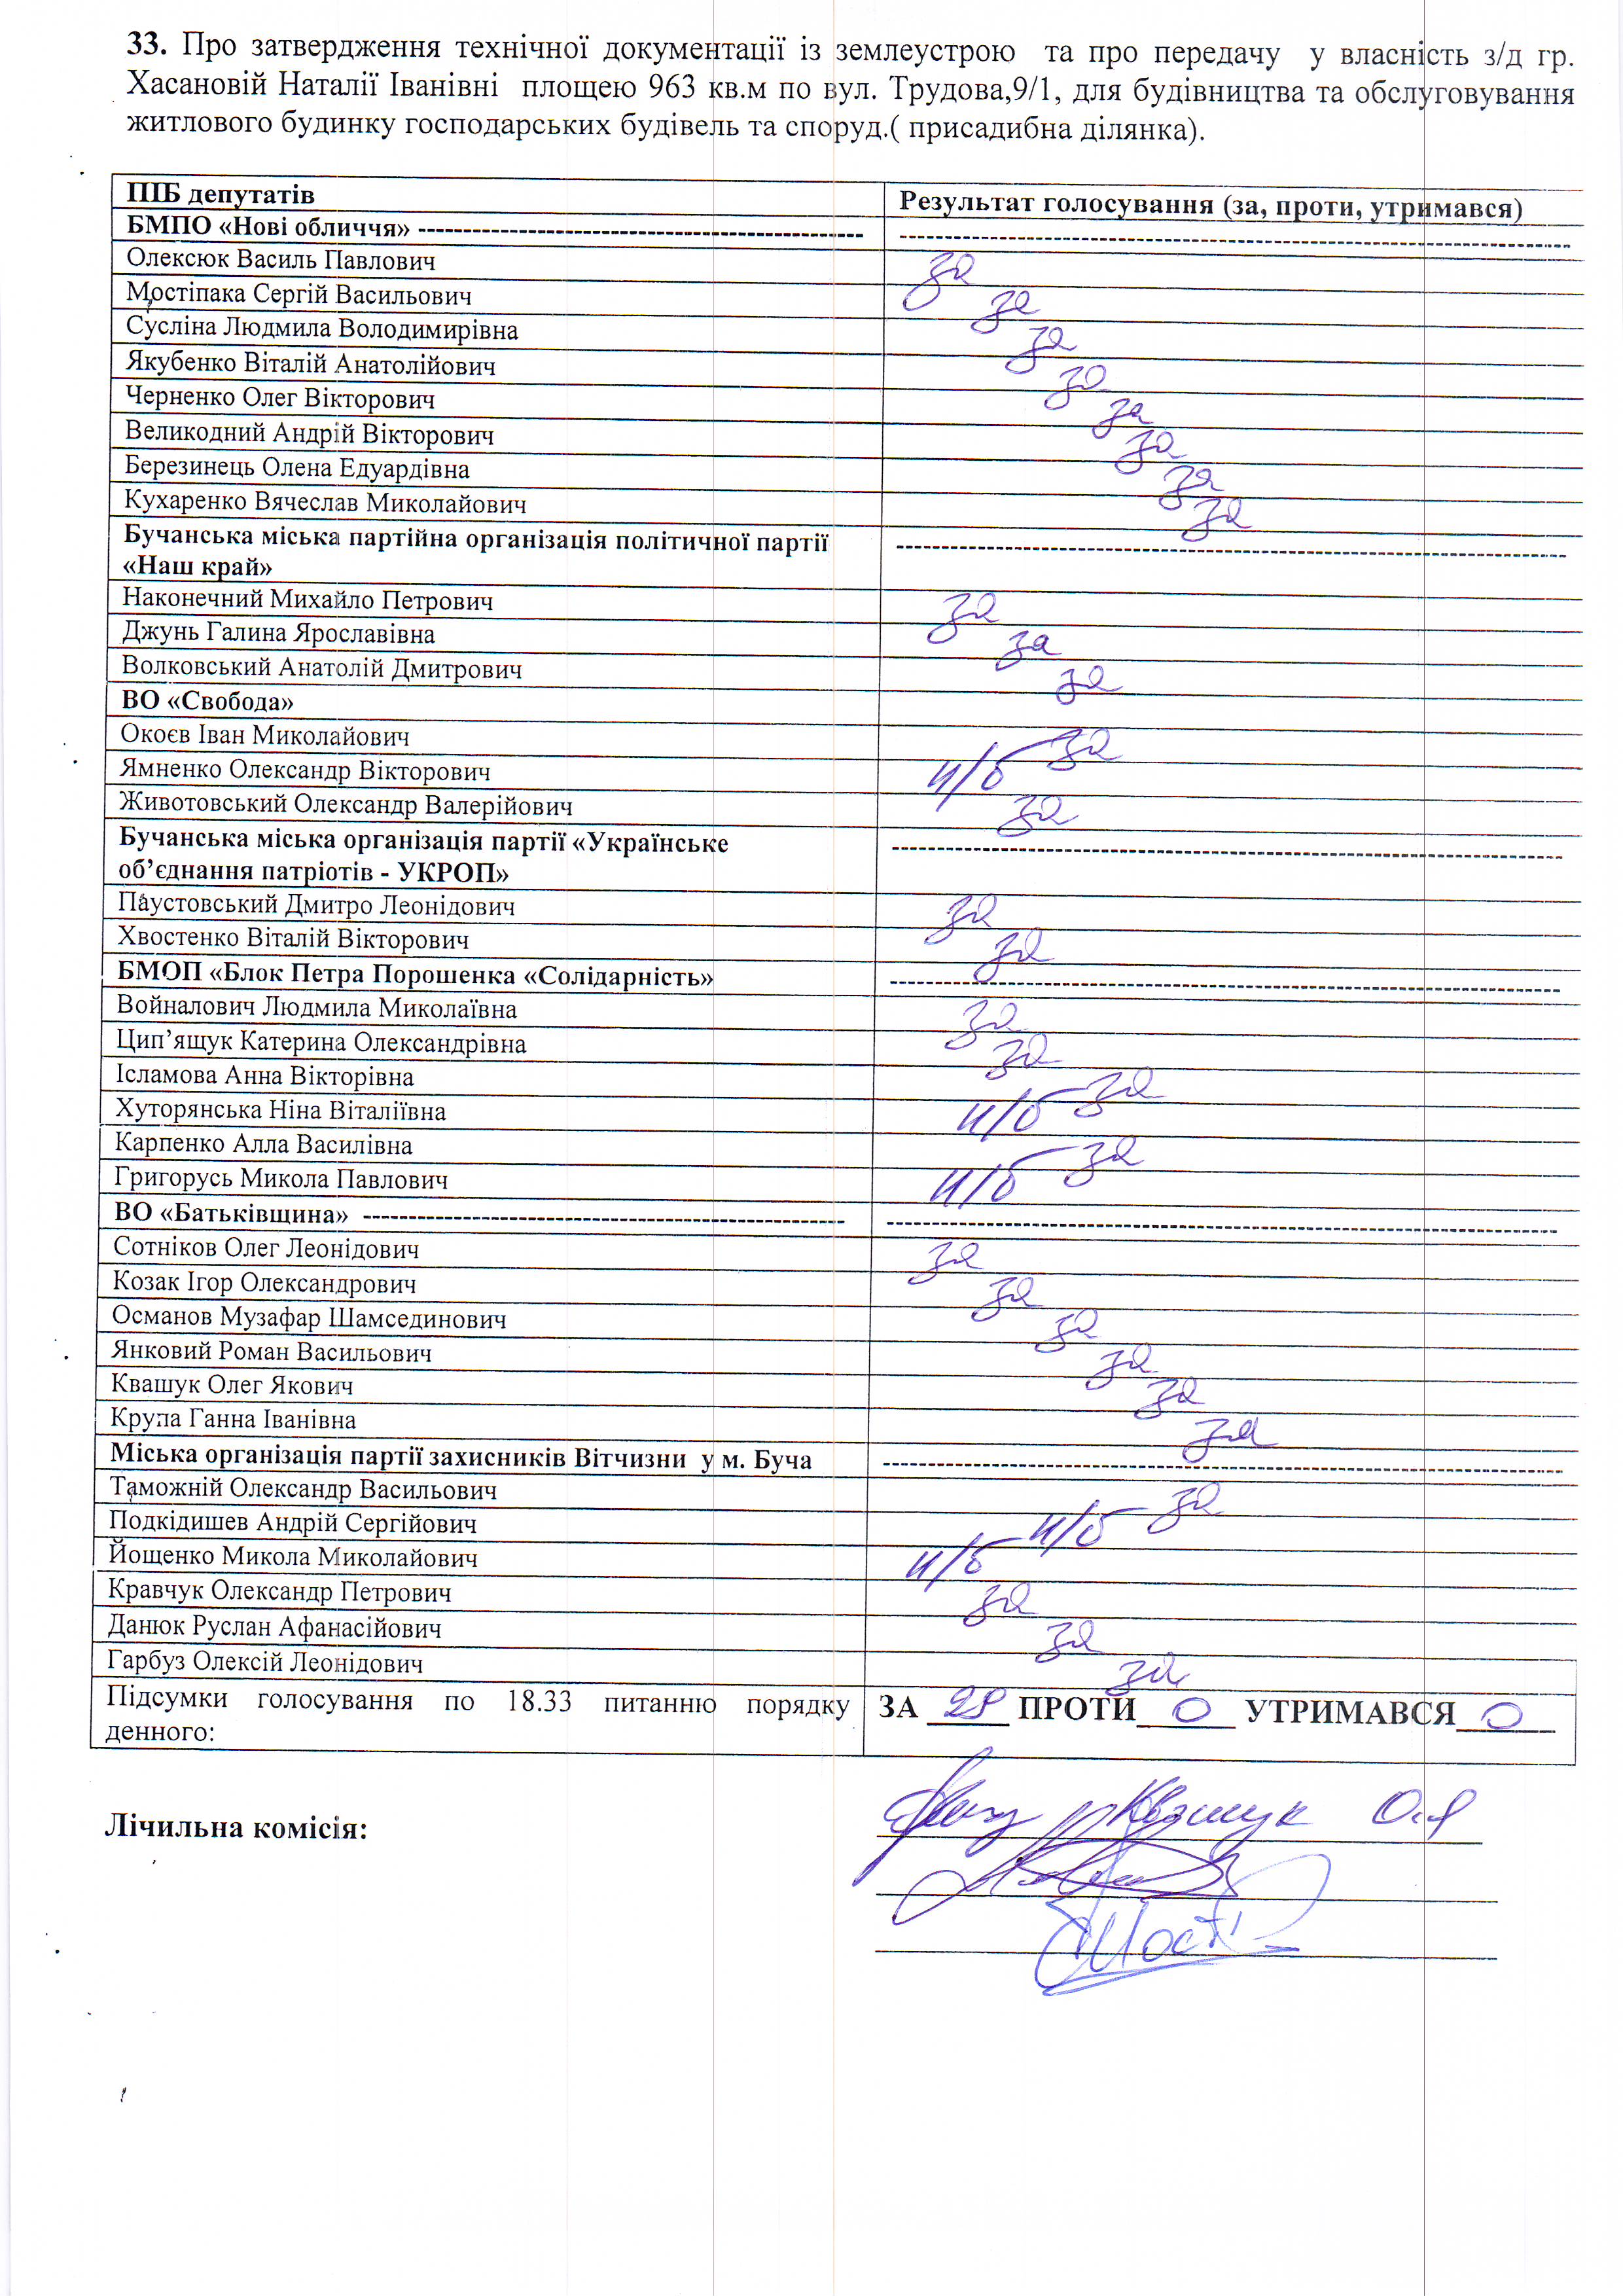 33. Про затвердження технічної документації із землеустрою та про передачу у власність з/д гр.
Хасановій Наталії Іванівні площею 963 кв.м по вул. Трудова,9/1, для будівництва та обслуговування
житлового будинку господарських будівель та споруд.( присадибна ділянка).
ПІБ депутатів Результат голосування (за, проти, утримався)
БМПО «Нові обличчя» ---
Олексюк Василь Павлович за
Мостіпака Сергій Васильович за
Сусліна Людмила Володимирівна за
Якубенко Віталій Анатолійович за
Черненко Олег Вікторович за
Великодний Андрій Вікторович за
Березинець Олена Едуардівна за
Кухаренко Вячеслав Миколайович за
Бучанська міська партійна організація політичної партії
«Наш край»
Наконечний Михайло Петрович за
Джунь Галина Ярославівна за
Волковський Анатолій Дмитрович за
ВО «Свобода»
Окоєв Іван Миколайович за
Ямненко Олександр Вікторович н/б
Животовський Олександр Валерійович за
Бучанська міська організація партії «Українське
об’єднання патріотів - УКРОП»
Паустовський Дмитро Леонідович за
Хвостенко Віталій Вікторович за
БМОП «Блок Петра Порошенка «Солідарність»
Войналович Людмила Миколаївна за
Цип’ящук Катерина Олександрівна за
Ісламова Анна Вікторівна за
Хуторянська Ніна Віталіївна н/б
Карпенко Алла Василівна за
Григорусь Микола Павлович н/б
ВО «Батьківщина» ---
Сотніков Олег Леонідович за
Козак Ігор Олександрович за
Османов Музафар Шамсединович за
Янковий Роман Васильович за
Квашук Олег Якович за
Крупа Ганна Іванівна за
Міська організація партії захисників Вітчизни у м. Буча
Таможній Олександр Васильович за
Подкідишев Андрій Сергійович н/б
Йощенко Микола Миколайович н/б
Кравчук Олександр Петрович за
Данюк Руслан Афанасійович за
Гарбуз Олексій Леонідович за
Підсумки голосування по 18.33 питанню порядку
денного:
ЗА 29 ПРОТИ 0 УТРИМАВСЯ 0
Лічильна комісія: Квашук О.Я